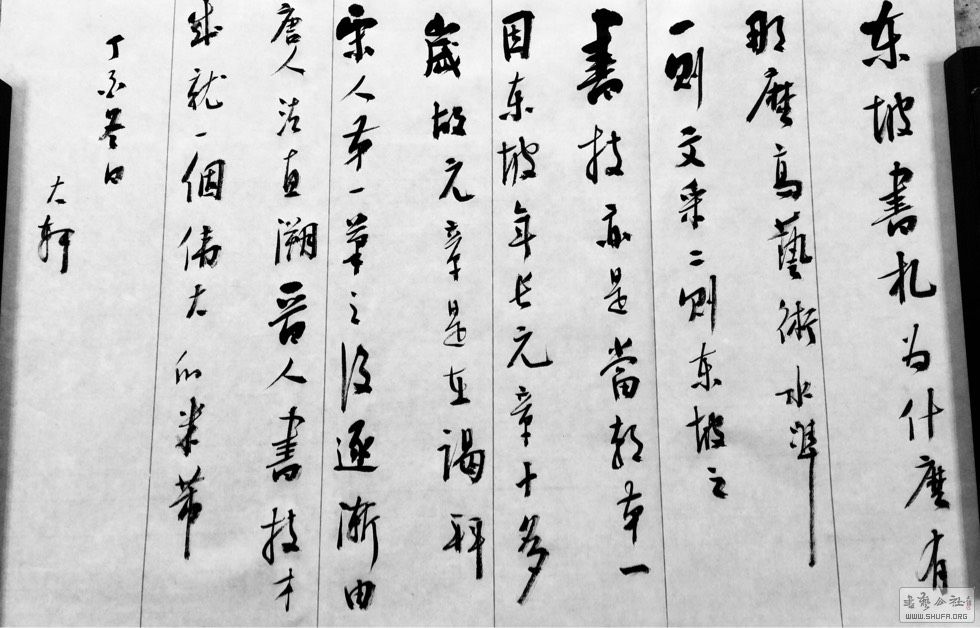 东坡書札为什麽有
那麽高藝術水準
一则文采二则东坡之
書技亦是當朝第一
因东坡年长元章十多
歲故元章是在谒拜
宋人第一筆之後逐漸由
唐人法直溯晋人書技才
成就一個偉大的米芾
丁酉冬日
大軒
書藝公社
WWW.SHUFA.ORG